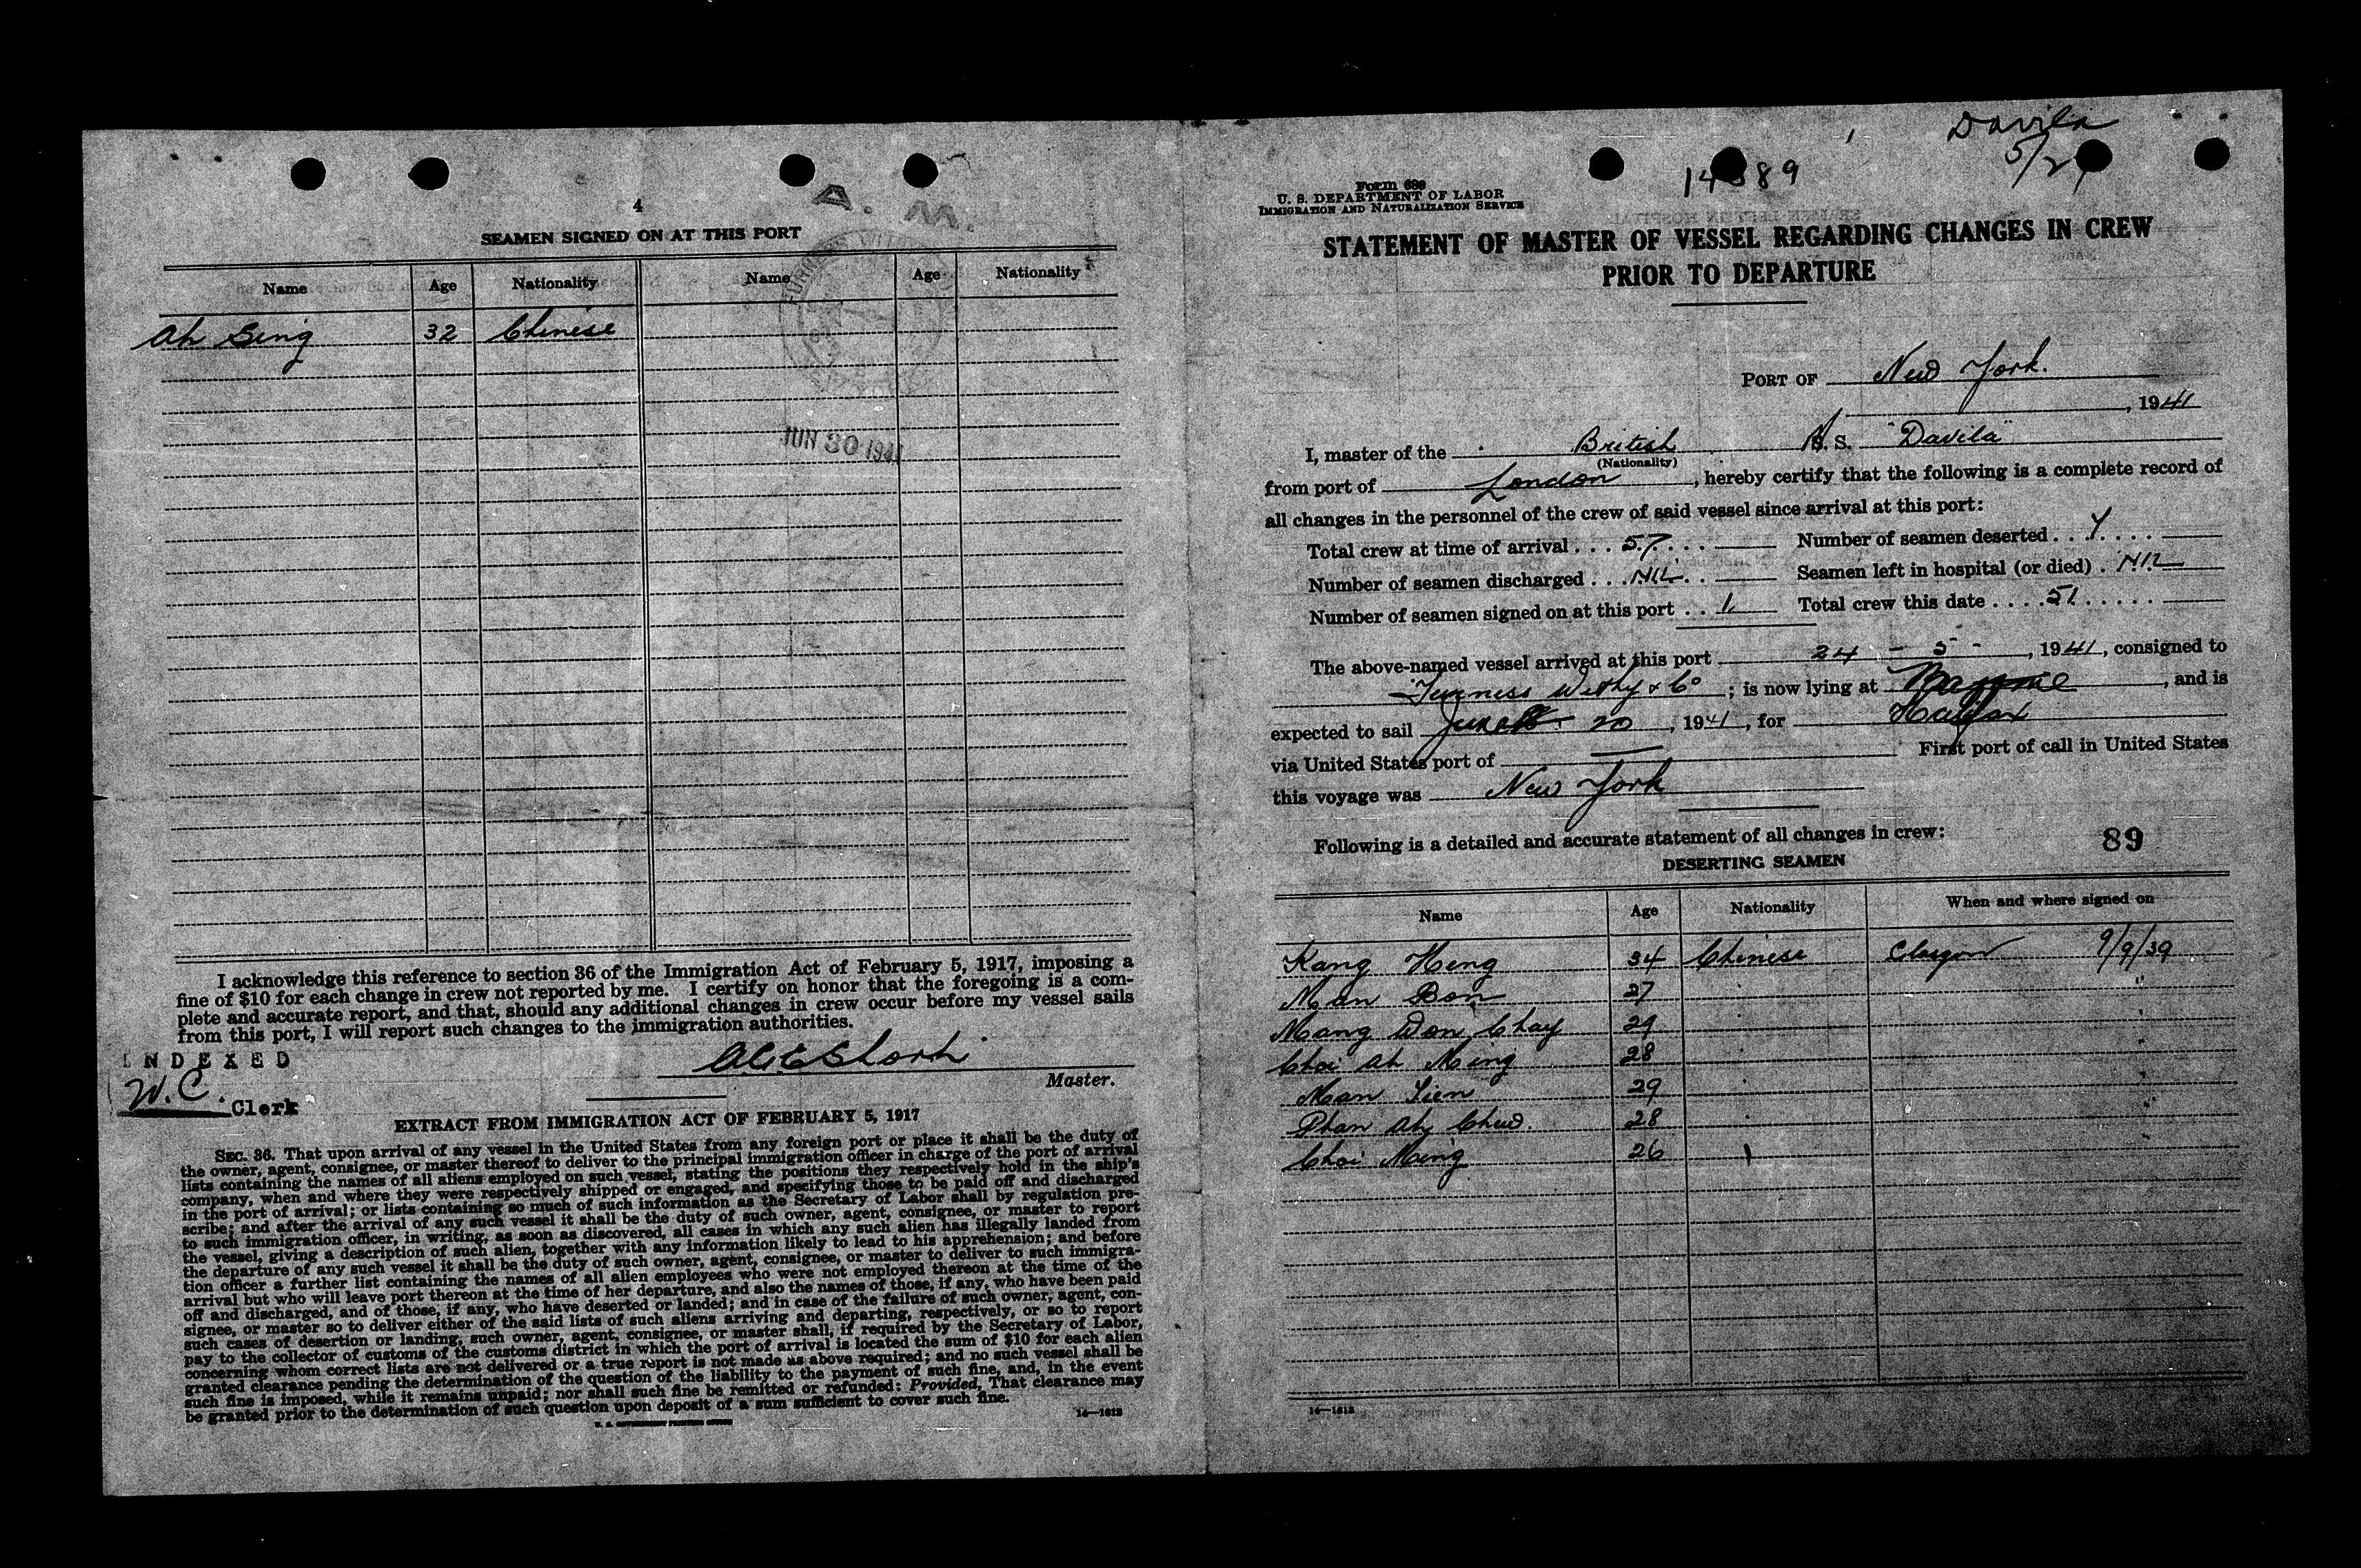 4
A. M.
SEAMEN SIGNED ON AT THIS PORT
Name Age Nationality Name Age Nationality
Ah Sing 32 Chinese
JUN 30 1941
I acknowledge this reference to section 36 of the Immigration Act of February 5, 1917, imposing a
fine of $10 for each change in crew not reported by me. I certify on honor that the foregoing is a com-
plete and accurate report, and that, should any additional changes in crew occur before my vessel sails
from this port, I will report such changes to the immigration authorities.
INDEXED
W.C. Clerk
Master.
EXTRACT FROM IMMIGRATION ACT OF FEBRUARY 5, 1917
SEC. 36. That upon arrival of any vessel in the United States from any foreign port or place it shall be the duty of
the owner, agent, consignee, or master thereof to deliver to the principal immigration officer in charge of the port of arrival
lists containing the names of all aliens employed on such vessel, stating the positions they respectively hold in the ship's
company, when and where they were respectively shipped or engaged, and specifying those to be paid off and discharged
in the port of arrival; or lists containing so much of such information as the Secretary of Labor shall by regulation pre-
scribe; and after the arrival of any such vessel it shall be the duty of such owner, agent, consignee, or master to report
to such immigration officer, in writing, as soon as discovered, all cases in which any such alien has illegally landed from
the vessel, giving a description of such alien, together with any information likely to lead to his apprehension; and before
the departure of any such vessel it shall be the duty of such owner, agent, consignee, or master to deliver to such immigra-
tion officer a further list containing the names of all alien employees who were not employed thereon at the time of the
arrival but who will leave port thereon at the time of her departure, and also the names of those, if any, who have been paid
off and discharged, and of those, if any, who have deserted or landed; and in case of the failure of such owner, agent, con-
signee, or master so to deliver either of the said lists of such aliens arriving and departing, respectively, or so to report
such cases of desertion or landing, such owner, agent, consignee, or master shall, if required by the Secretary of Labor,
pay to the collector of customs of the customs district in which the port of arrival is located the sum of $10 for each alien
concerning whom correct lists are not delivered or a true report is not made as above required; and no such vessel shall be
granted clearance pending the determination of the question of the liability to the payment of such fine, and, in the event
such fine is imposed, while it remains unpaid; nor shall such fine be remitted or refunded: Provided, That clearance may
be granted prior to the determination of such question upon deposit of a sum sufficient to cover such fine.
U. S. GOVERNMENT PRINTING OFFICE 14—1613
Davila
Form 689
U. S. DEPARTMENT OF LABOR
IMMIGRATION AND NATURALIZATION SERVICE
STATEMENT OF MASTER OF VESSEL REGARDING CHANGES IN CREW
PRIOR TO DEPARTURE
PORT OF New York.
, 1941
I, master of the British S. "Davila"
(Nationality)
from port of London, hereby certify that the following is a complete record of
all changes in the personnel of the crew of said vessel since arrival at this port:
Total crew at time of arrival . . . 57 . . . . Number of seamen deserted . . 7 . . . .
Number of seamen discharged . . . NIL . . Seamen left in hospital (or died) . NIL
Number of seamen signed on at this port . . 1 Total crew this date . . . . 51 . . . . .
The above-named vessel arrived at this port 24 - 5 - , 1941, consigned to
Furness Withy & Co ; is now lying at Bayonne, and is
expected to sail June 20, 1941, for Halifax
via United States port of — First port of call in United States
this voyage was New York
Following is a detailed and accurate statement of all changes in crew: 89
DESERTING SEAMEN
Name Age Nationality When and where signed on
Kang Heng 34 Chinese Glasgow 9/9/39
Man Bon 27 " "
Mang Won Chay 29 " "
Choi Ah Ming 28 " "
Man Lien 29 " "
Phan Ah Chew. 28 " "
Choi Ming 26
14—1613